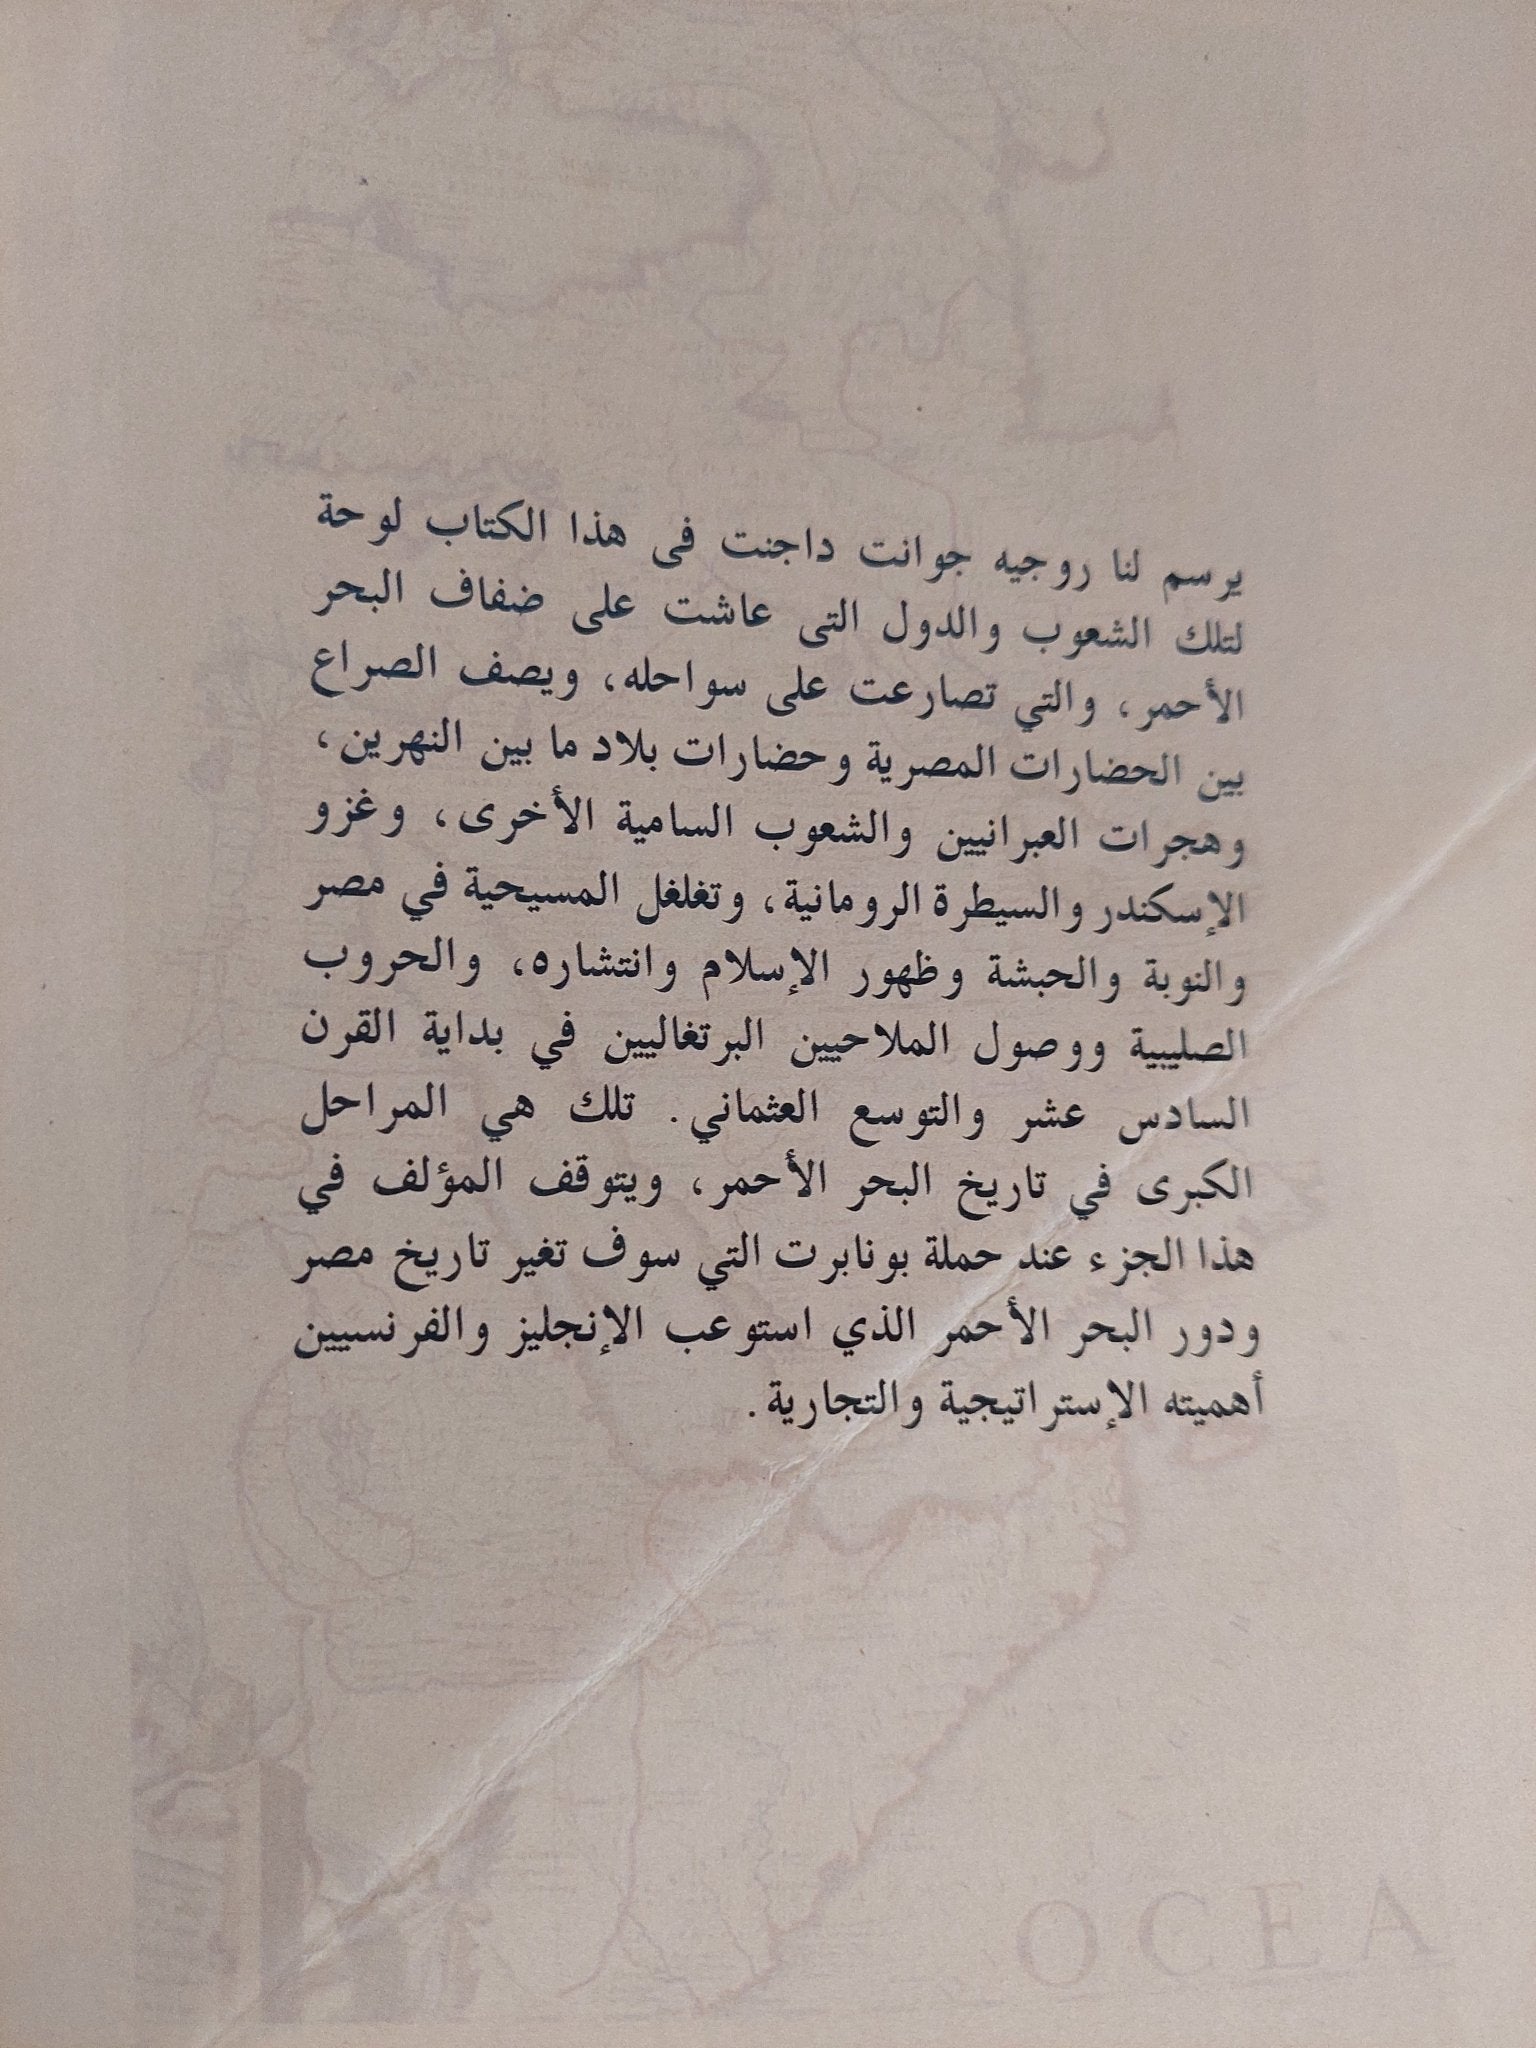 يرسم لنا روجيه جوانت داجنت فى هذا الكتاب لوحة
لتلك الشعوب والدول التى عاشت على ضفاف البحر
الأحمر، والتي تصارعت على سواحله، ويصف الصراع
بين الحضارات المصرية وحضارات بلاد ما بين النهرين،
وهجرات العبرانيين والشعوب السامية الأخرى، وغزو
الإسكندر والسيطرة الرومانية، وتغلغل المسيحية في مصر
والنوبة والحبشة وظهور الإسلام وانتشاره، والحروب
الصليبية ووصول الملاحيين البرتغاليين في بداية القرن
السادس عشر والتوسع العثماني. تلك هي المراحل
الكبرى في تاريخ البحر الأحمر، ويتوقف المؤلف في
هذا الجزء عند حملة بونابرت التي سوف تغير تاريخ مصر
ودور البحر الأحمر الذي استوعب الإنجليز والفرنسيين
أهميته الإستراتيجية والتجارية.
OCEA